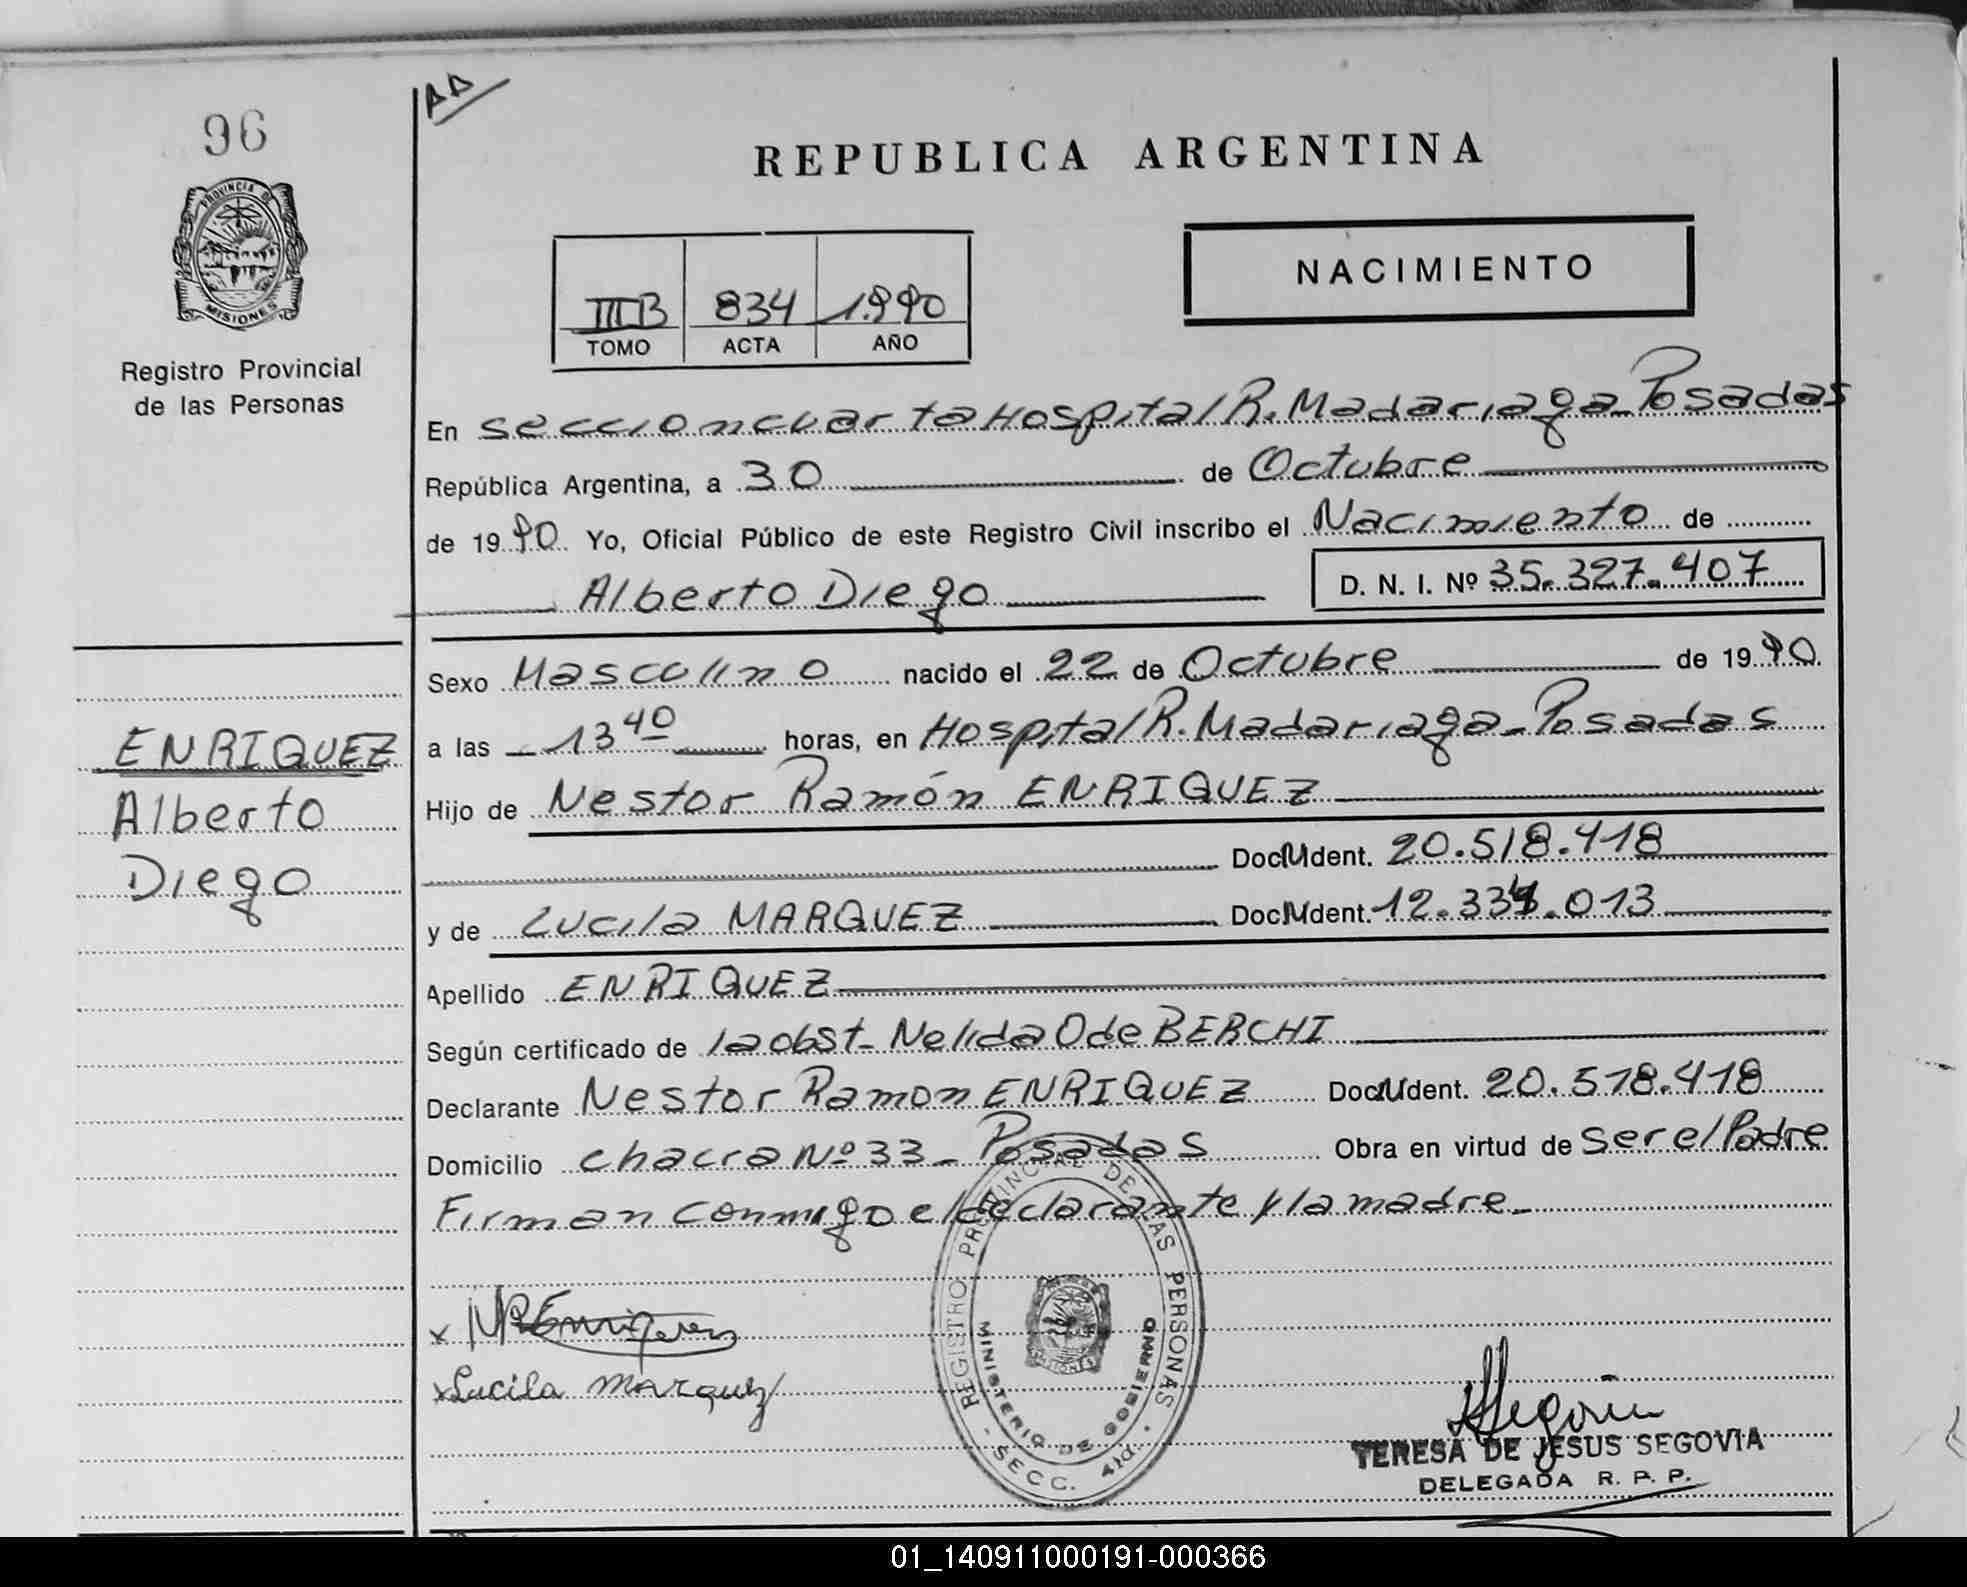 96
AD
REPUBLICA ARGENTINA
PROVINCIA DE
MISIONES
Registro Provincial
de las Personas
III B 834 1.990
TOMO ACTA AÑO
NACIMIENTO
En seccion cuarta Hospital R. Madariaga - Posadas
República Argentina, a 30 de Octubre
de 1990 Yo, Oficial Público de este Registro Civil inscribo el Nacimiento de
Alberto Diego D. N. I. Nº 35.327.407
Sexo Masculino nacido el 22 de Octubre de 1990
a las 13 40 horas, en Hospital R. Madariaga - Posadas
Hijo de Nestor Ramón ENRIQUEZ
Doc. Ident. 20.518.418
y de Lucila MARQUEZ Doc. Ident. 12.334.013
Apellido ENRIQUEZ
Según certificado de la obst - Nelida O de BERCHI
Declarante Nestor Ramon ENRIQUEZ Doc. Ident. 20.518.418
Domicilio chacra Nº 33 - Posadas Obra en virtud de ser el Padre
Firman conmigo el declarante y la madre -
ENRIQUEZ
Alberto
Diego
x NREnriquez
x Lucila Marquez
REGISTRO PROVINCIAL DE LAS PERSONAS
MINISTERIO DE GOBIERNO
SECC. 4ta.
MISIONES
Segovia
TERESA DE JESUS SEGOVIA
DELEGADA R. P. P.
01_140911000191-000366